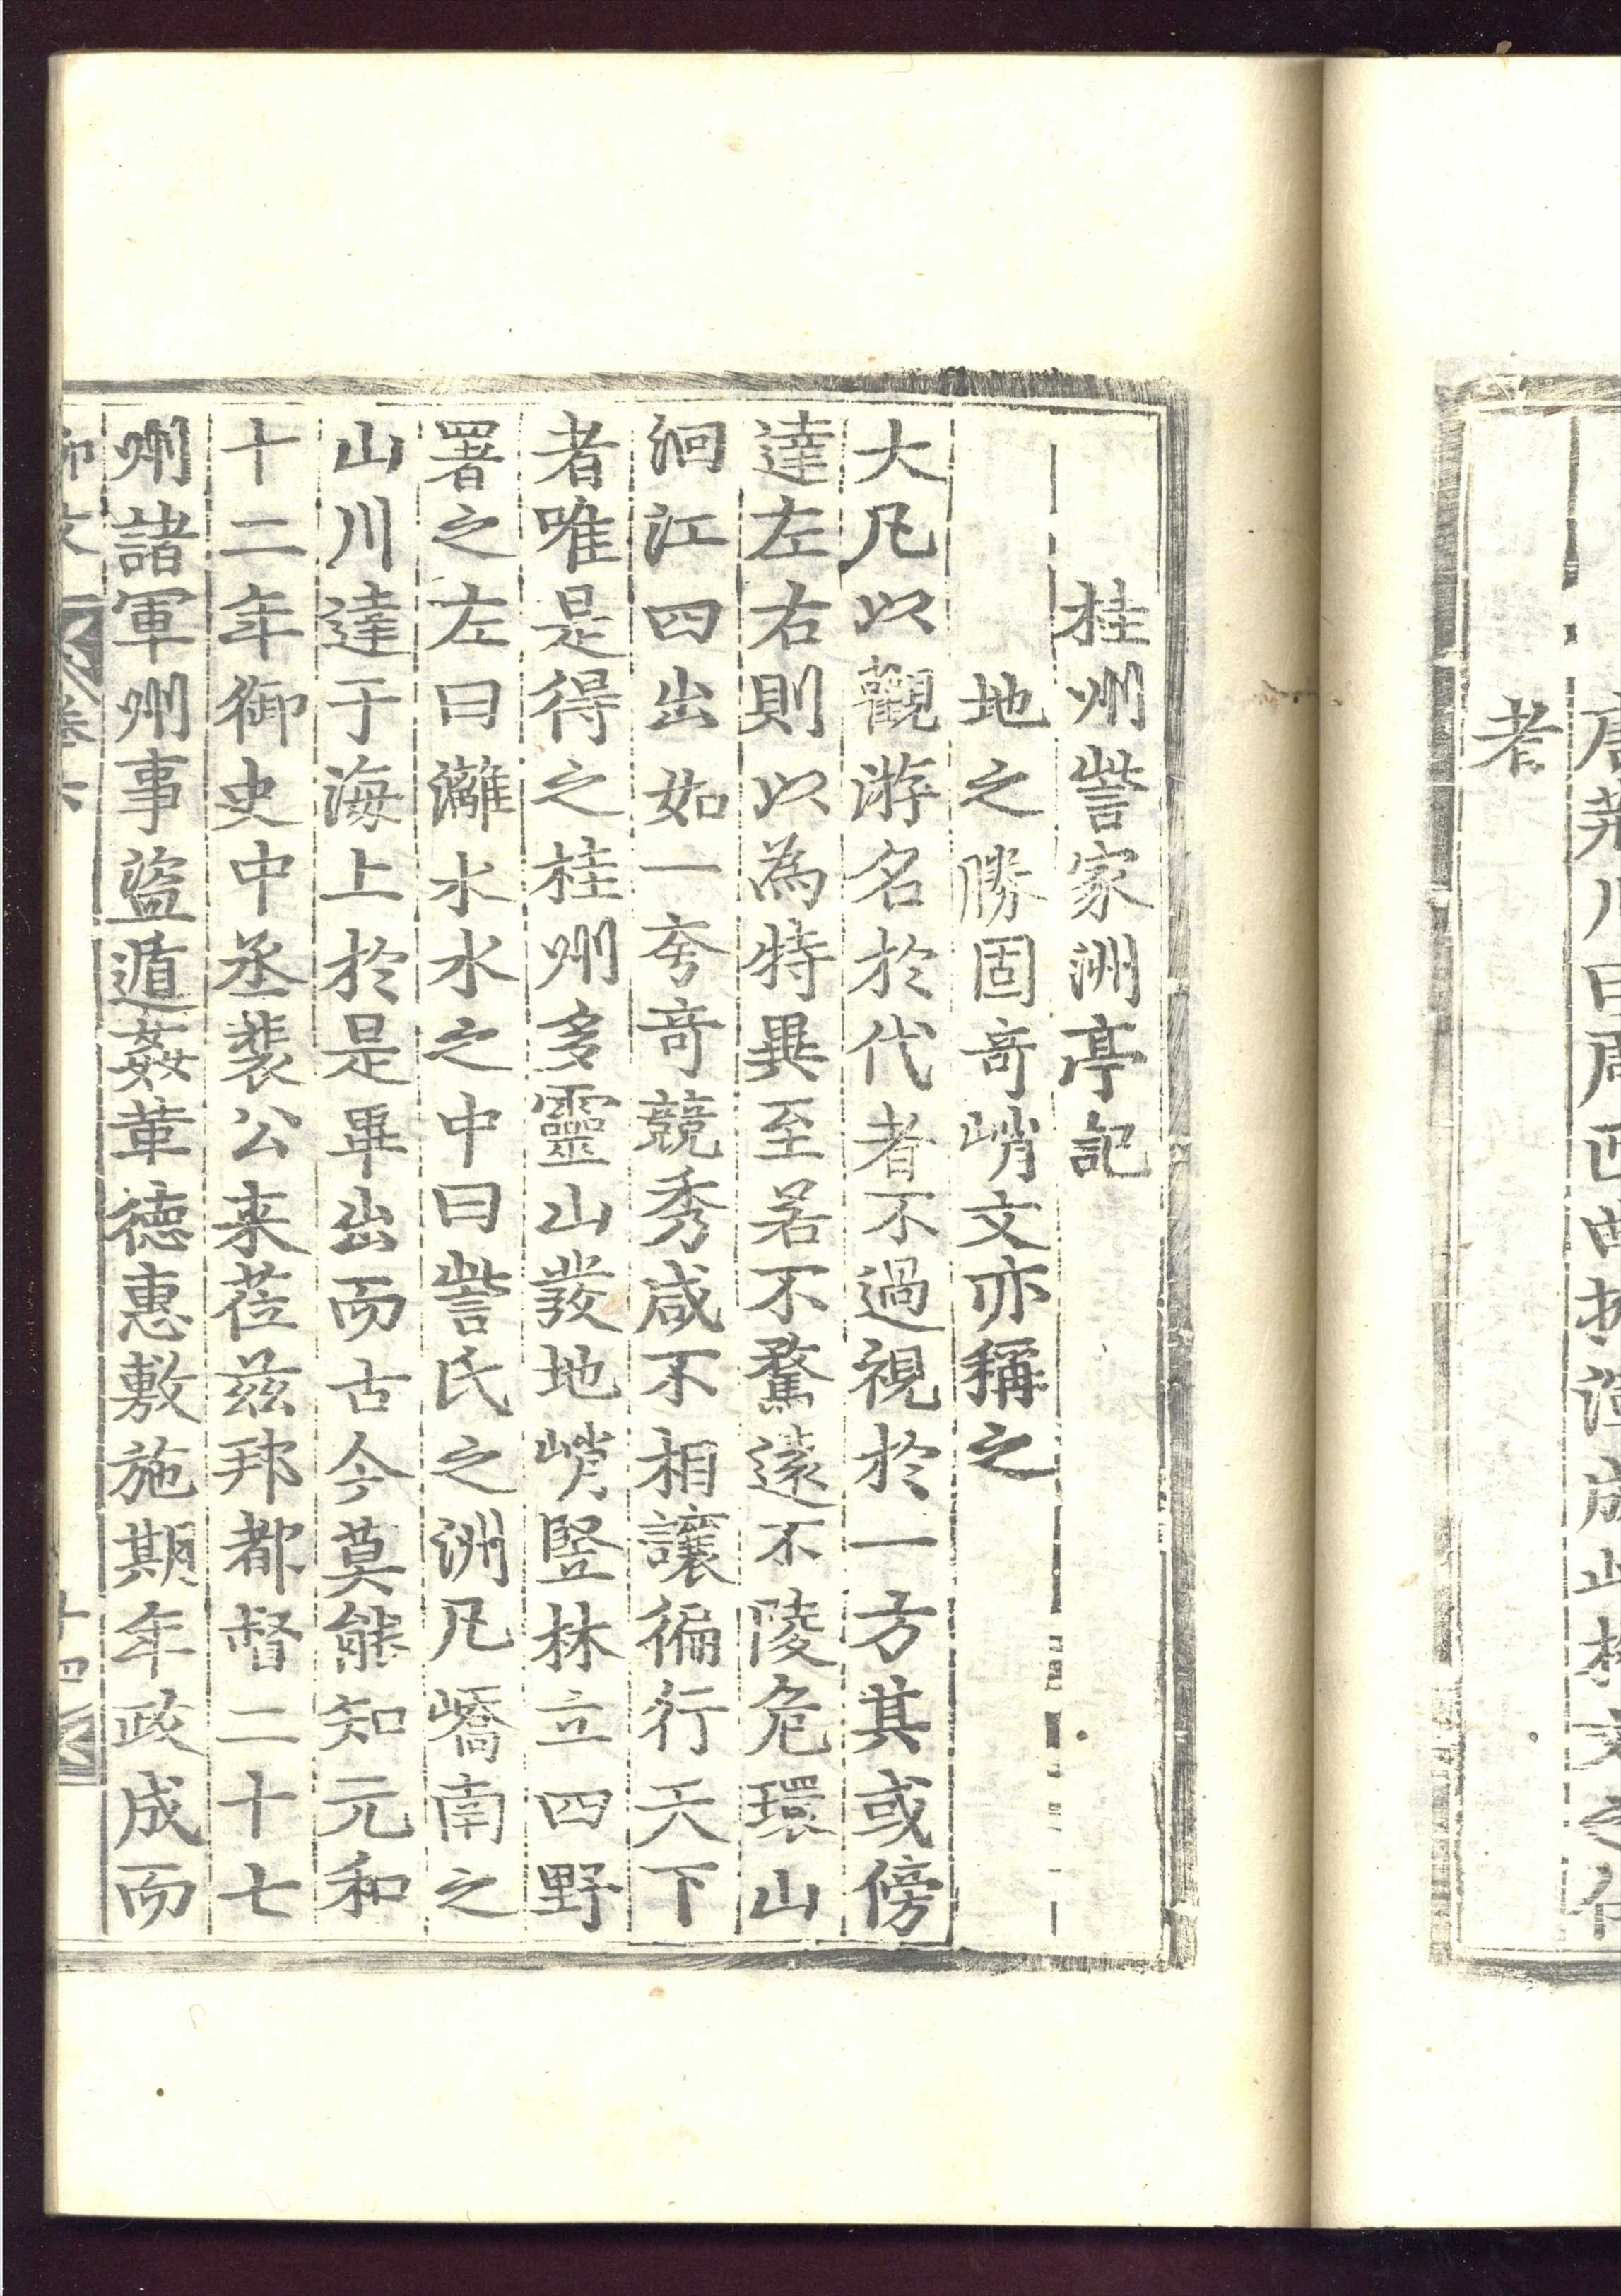 者
桂州訾家洲亭記
地之勝固奇峭文亦稱之
大凡以觀游名於代者不過視於一方其或傍
達左右則以為特異至若不騖遠不陵危環山
洄江四出如一夸竒競秀咸不相讓徧行天下
者唯是得之桂州多靈山發地峭豎林立四野
署之左曰灕水水之中曰訾氏之洲凡嶠南之
山川達于海上於是畢出而古今莫能知元和
十二年御史中丞裴公来莅茲邦都督二十七
州諸軍州事盜遁姦革德惠敷施期年政成而